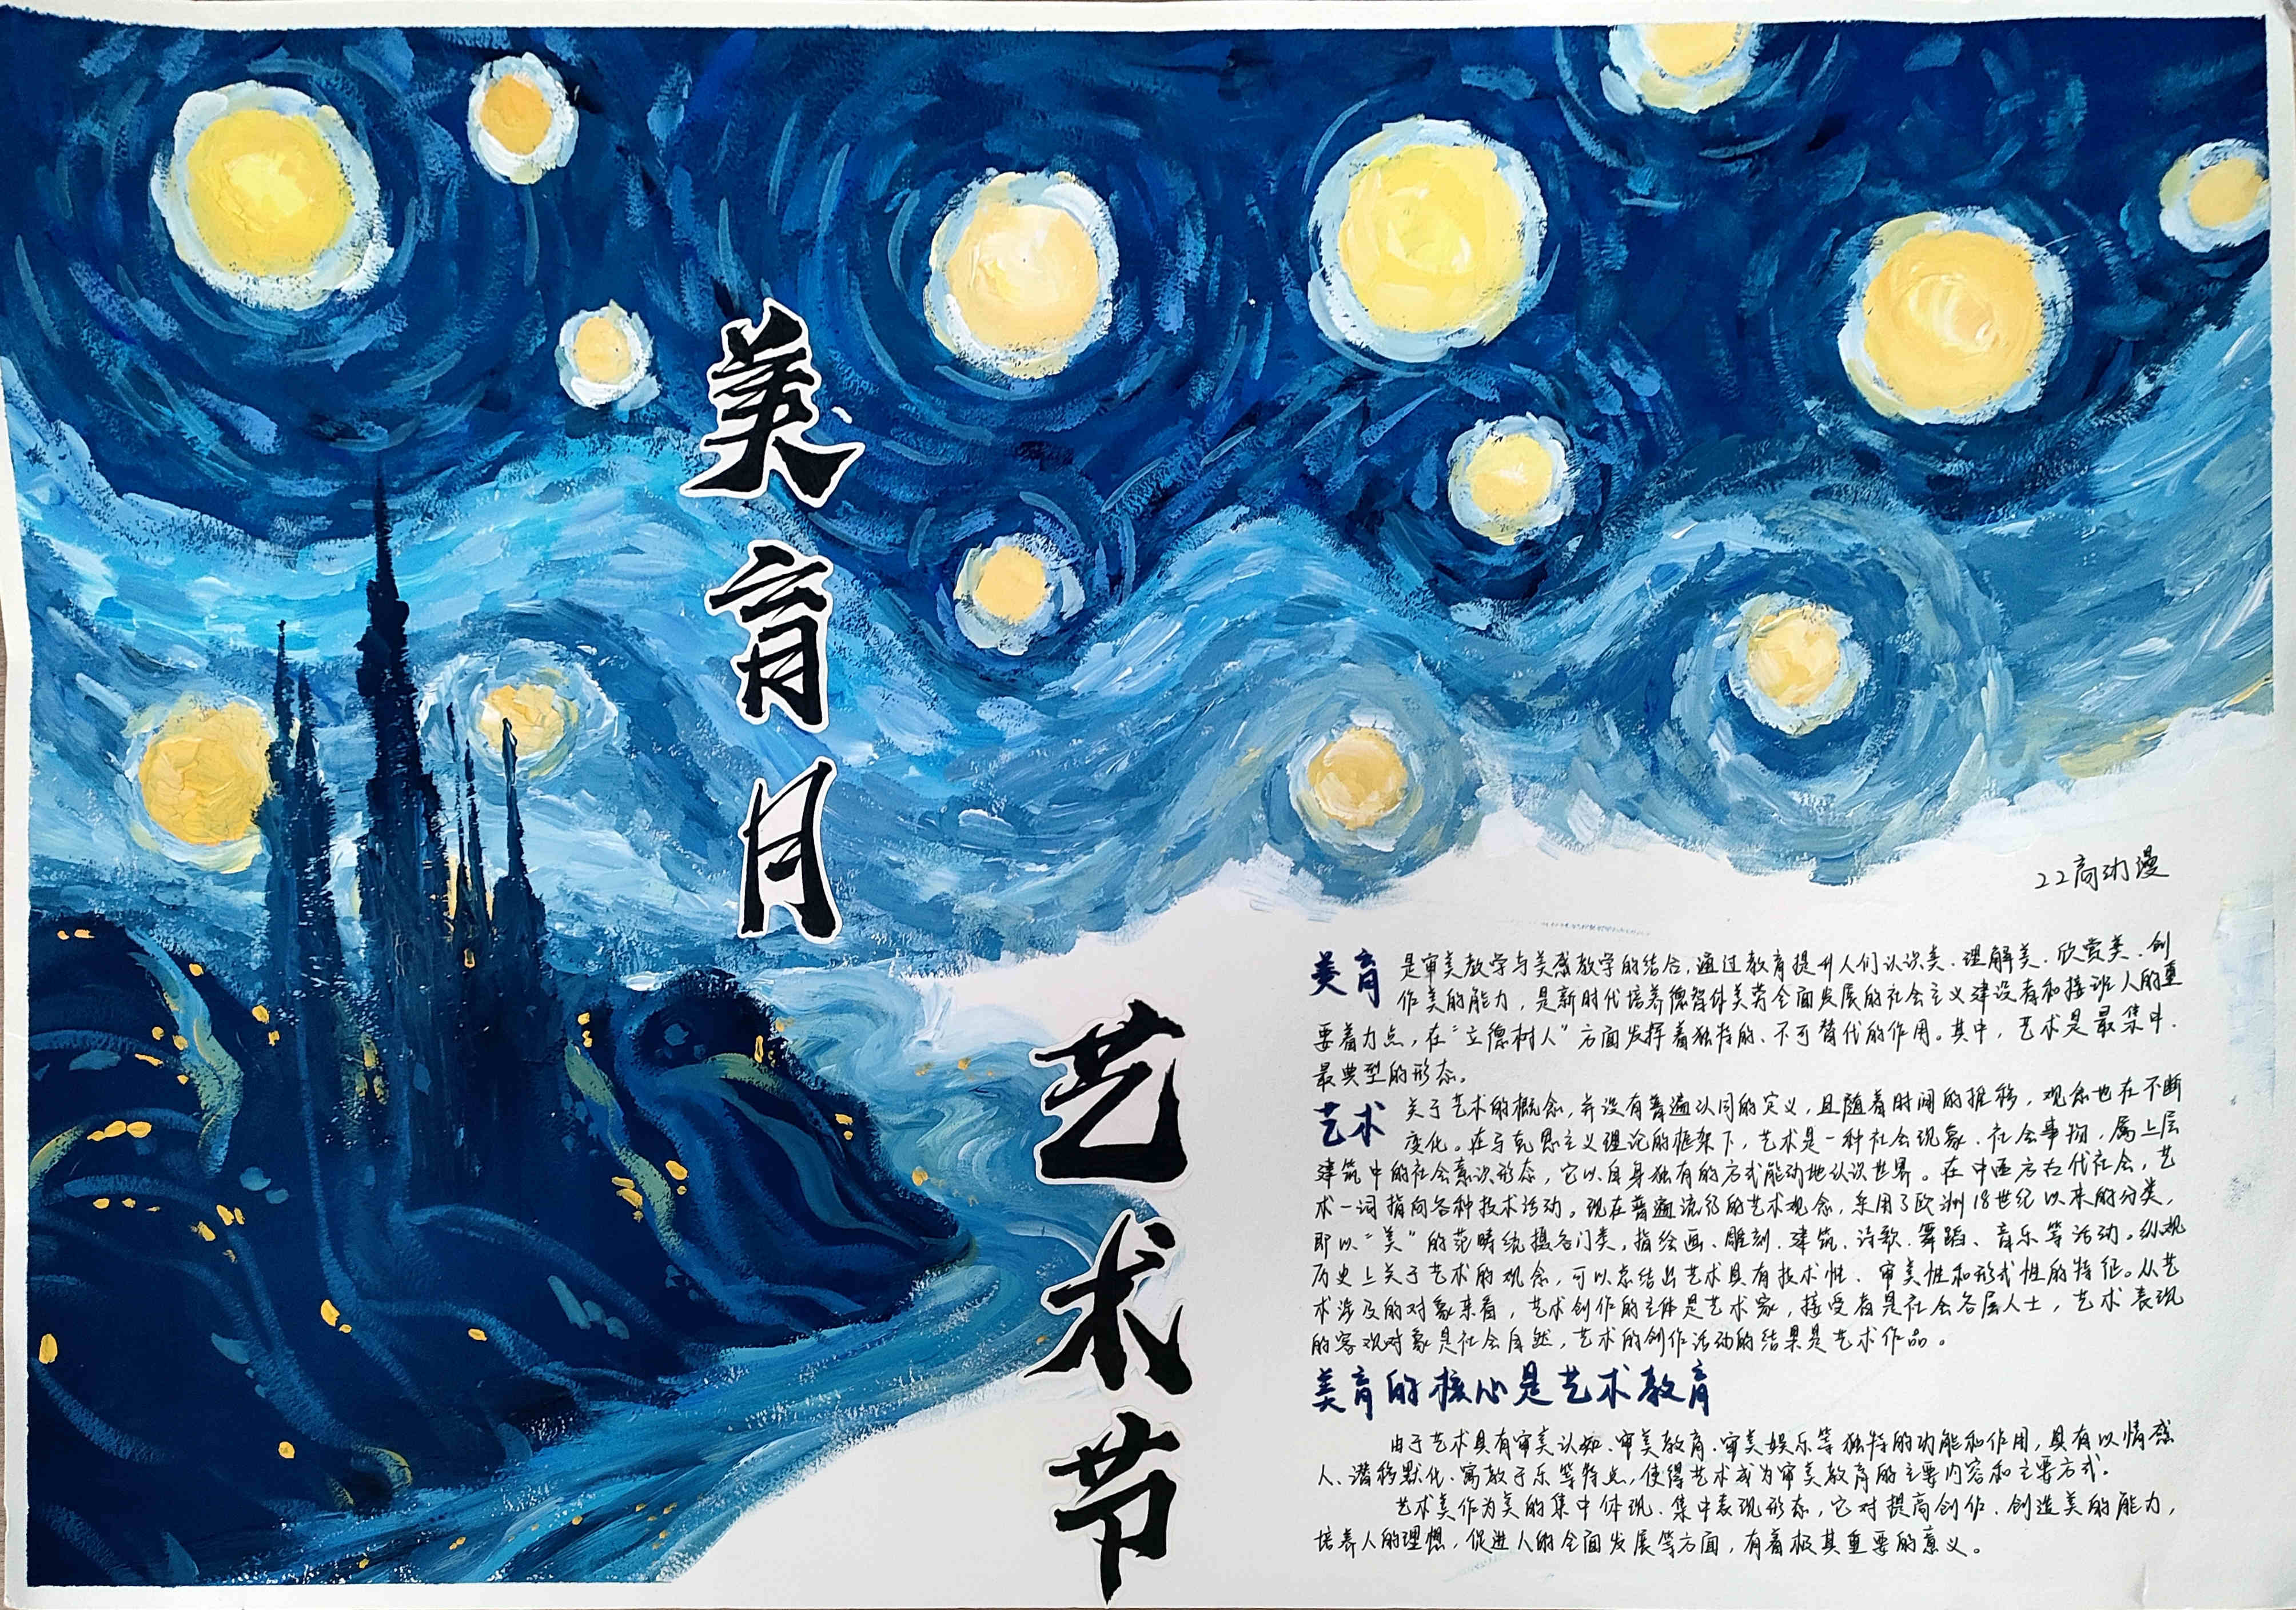 美育月
艺术节
22高动漫
美育 是审美教学与美感教学的结合,通过教育提升人们认识美、理解美、欣赏美、创
作美的能力,是新时代培养德智体美劳全面发展的社会主义建设者和接班人的重
要着力点,在“立德树人”方面发挥着独特的、不可替代的作用。其中,艺术是最集中、
最典型的形态。
艺术 关于艺术的概念,并没有普遍认同的定义,且随着时间的推移,观念也在不断
变化。在马克思主义理论的框架下,艺术是一种社会现象、社会事物,属上层
建筑中的社会意识形态,它以自身独有的方式能动地认识世界。在中西方古代社会,艺
术一词指向各种技术活动。现在普遍流行的艺术观念,采用了欧洲18世纪以来的分类,
即以“美”的范畴统摄各门类,指绘画、雕刻、建筑、诗歌、舞蹈、音乐等活动。纵观
历史上关于艺术的观念,可以总结出艺术具有技术性、审美性和形式性的特征。从艺
术涉及的对象来看,艺术创作的主体是艺术家,接受者是社会各层人士,艺术表现
的客观对象是社会自然,艺术的创作活动的结果是艺术作品。
美育的核心是艺术教育
由于艺术具有审美认知、审美教育、审美娱乐等独特的功能和作用,具有以情感
人、潜移默化、寓教于乐等特点,使得艺术成为审美教育的主要内容和主要方式。
艺术美作为美的集中体现、集中表现形态,它对提高创作、创造美的能力,
培养人的理想,促进人的全面发展等方面,有着极其重要的意义。